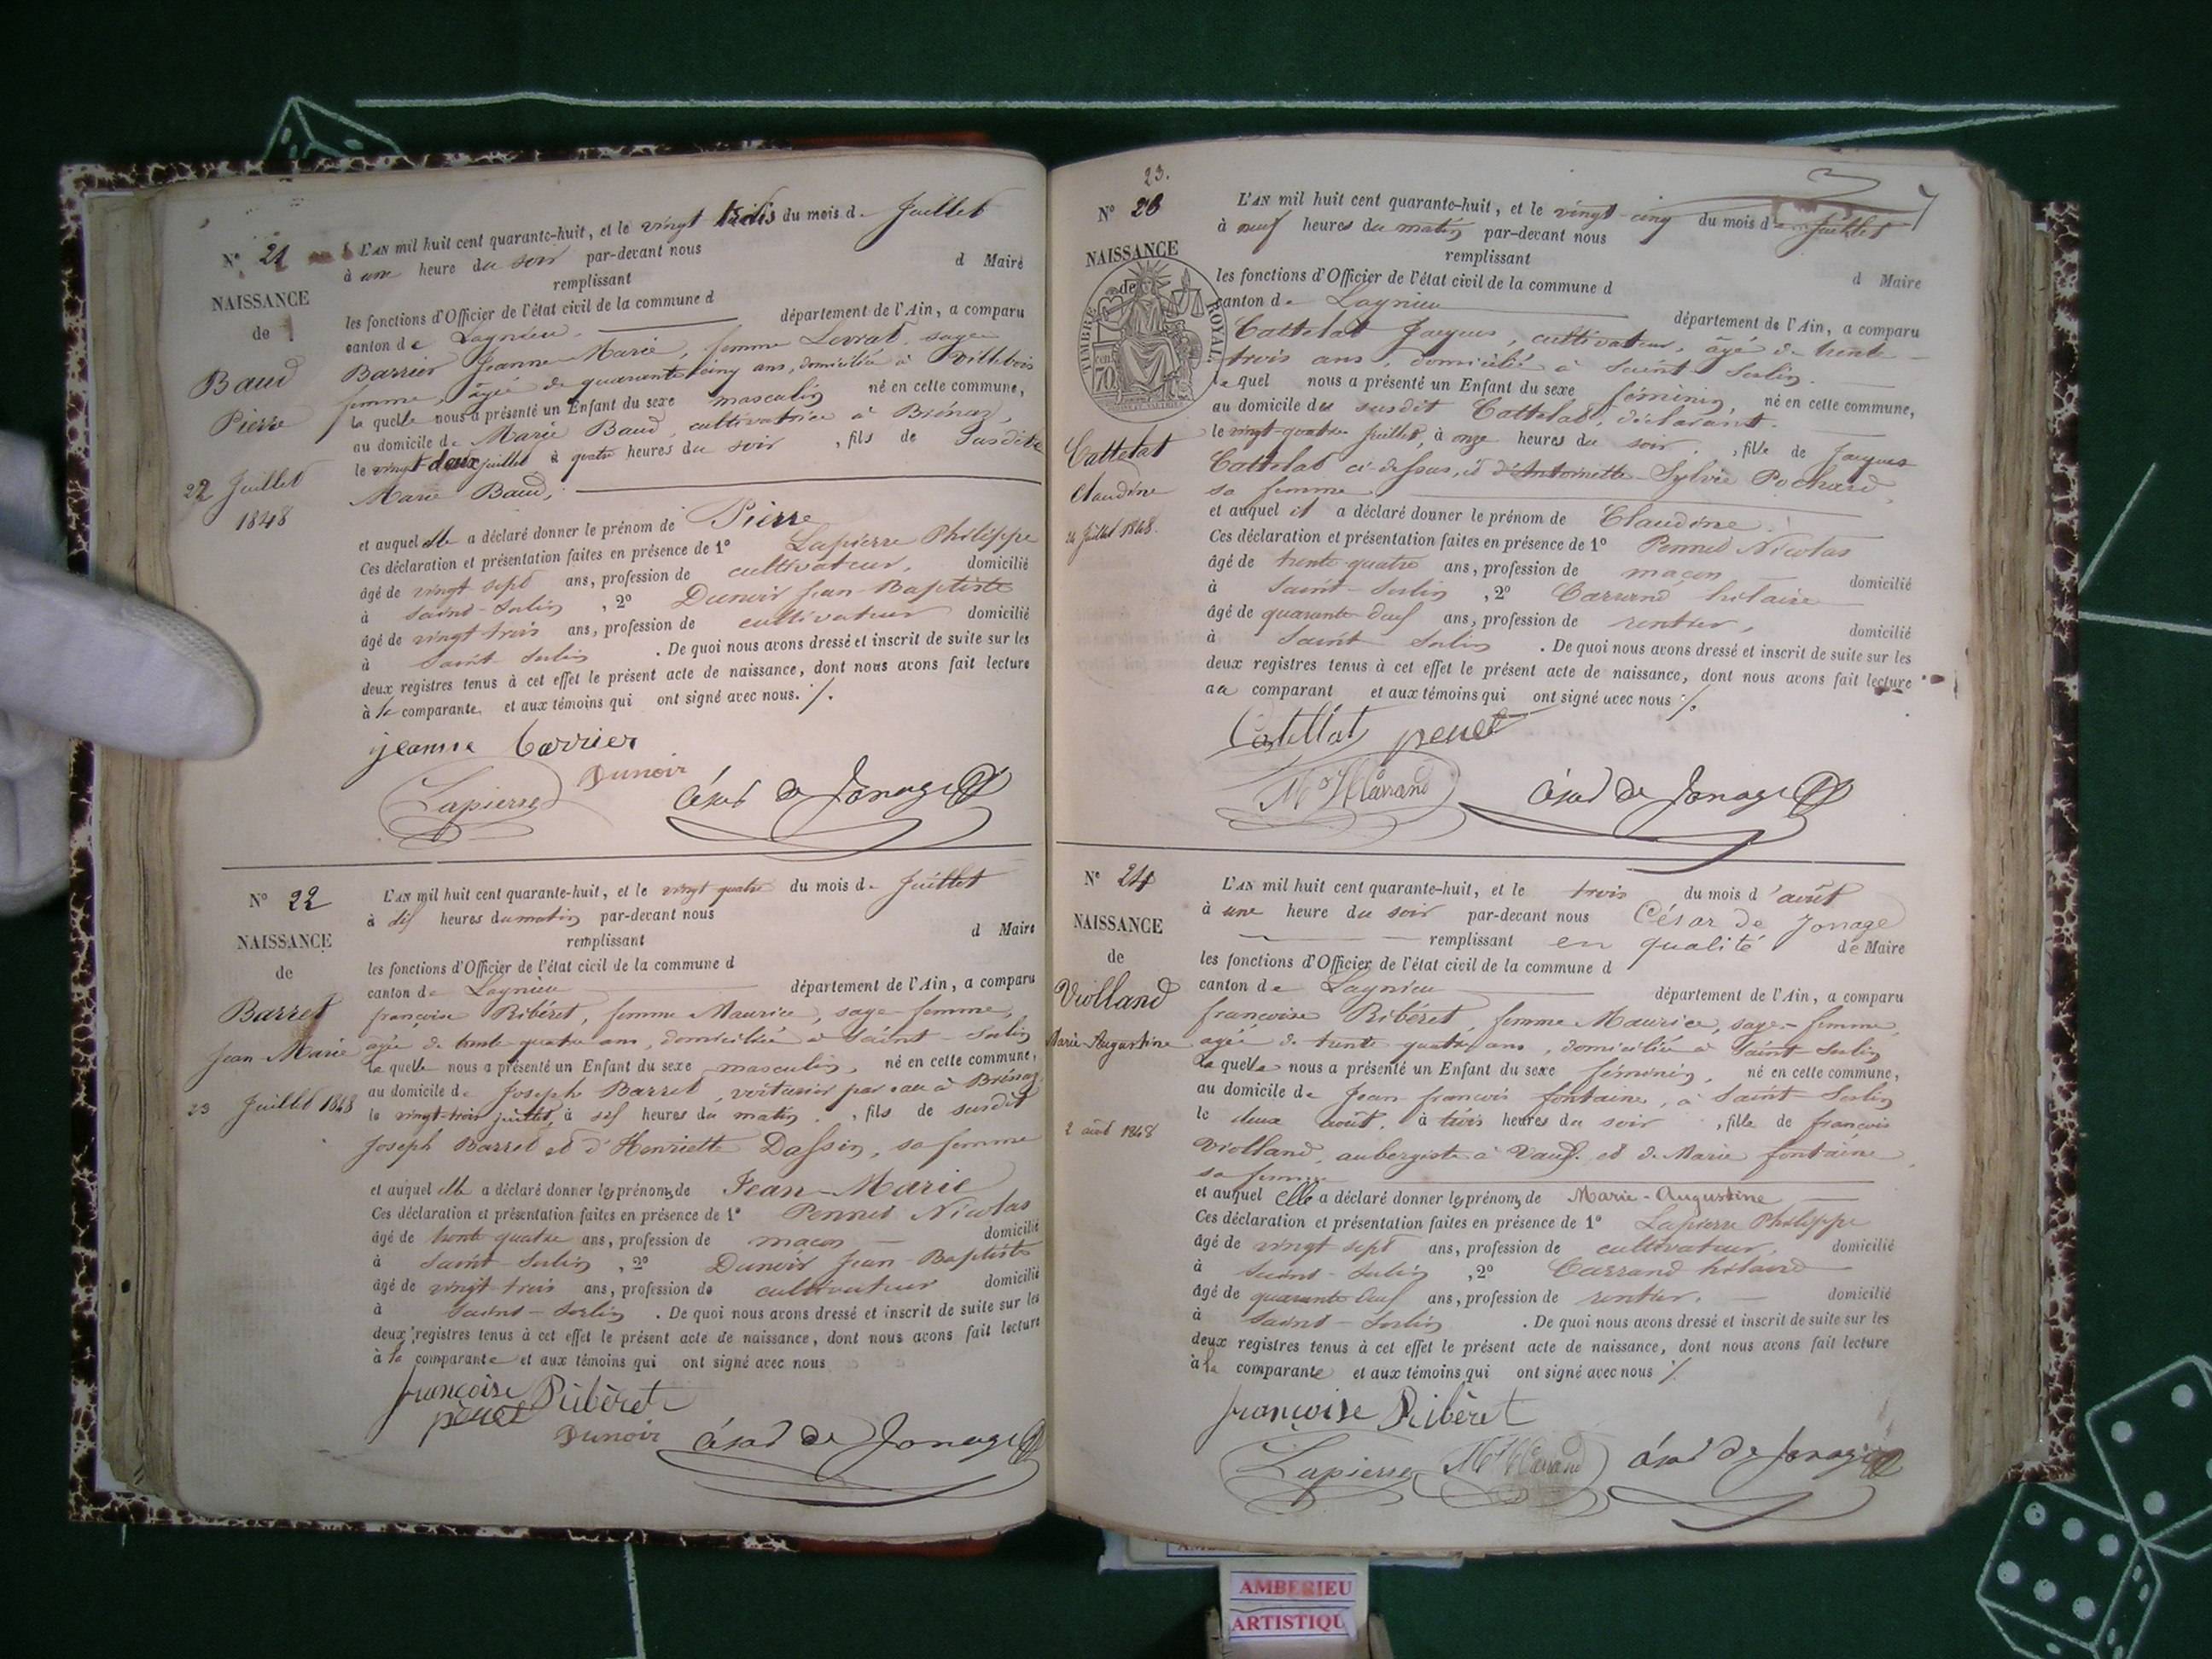 N° 21
NAISSANCE
de
Baud
Pierre
22 Juillet
1848
L'AN mil huit cent quarante-huit, et le vingt trois du mois de Juillet
à une heure du soir par-devant nous
remplissant d Maire
les fonctions d'Officier de l'état civil de la commune d
canton de Lagnieu département de l'Ain, a comparu
Barrier Jeanne-Marie, femme Levrat, sage
femme, âgée de quarante cinq ans, domiciliée à Villebois
la quelle nous a présenté un Enfant du sexe masculin né en cette commune,
au domicile de Marie Baud, cultivatrice à Brénaz,
le vingt deux juillet à quatre heures du soir, fils de susdite
Marie Baud,
et auquel elle a déclaré donner le prénom de Pierre
Ces déclaration et présentation faites en présence de 1° Lapierre Philippe
âgé de vingt sept ans, profession de cultivateur, domicilié
à Saint-Sorlin, 2° Dunoir Jean-Baptiste
âgé de vingt trois ans, profession de cultivateur domicilié
à Saint Sorlin. De quoi nous avons dressé et inscrit de suite sur les
deux registres tenus à cet effet le présent acte de naissance, dont nous avons fait lecture
à la comparante et aux témoins qui ont signé avec nous. /.
jeanne barrier
Dunoir
Lapierre César de Jonage
N° 22
NAISSANCE
de
Barret
Jean-Marie
23 Juillet 1848
L'AN mil huit cent quarante-huit, et le vingt quatre du mois de Juillet
à dix heures du matin par-devant nous
remplissant d Maire
les fonctions d'Officier de l'état civil de la commune d
canton de Lagnieu département de l'Ain, a comparu
françoise Ribéret, femme Maurice, sage-femme,
agée de trente quatre ans, domiciliée à Saint-Sorlin
la quelle nous a présenté un Enfant du sexe masculin, né en cette commune,
au domicile de Joseph Barret, voiturier par eau à Brénaz,
le vingt-trois juillet, à six heures du matin, fils de susdit
Joseph Barret et d'Henriette Dassin, sa femme
et auquel elle a déclaré donner les prénoms de Jean-Marie
Ces déclaration et présentation faites en présence de 1° Pennet Nicolas
âgé de trente quatre ans, profession de maçon domicilié
à Saint-Sorlin, 2° Dunoir Jean-Baptiste
âgé de vingt trois ans, profession de cultivateur domicilié
à Saint-Sorlin. De quoi nous avons dressé et inscrit de suite sur les
deux registres tenus à cet effet le présent acte de naissance, dont nous avons fait lecture
à la comparante et aux témoins qui ont signé avec nous
françoise Ribèret
penet
Dunoir César de Jonage
23.
N° 23
NAISSANCE
de
TIMBRE ROYAL.
70
Cattelat
Claudine
24 Juillet 1848.
L'AN mil huit cent quarante-huit, et le vingt-cinq du mois de Juillet
à neuf heures du matin par-devant nous
remplissant d Maire
les fonctions d'Officier de l'état civil de la commune d
canton de Lagnieu département de l'Ain, a comparu
Cattelat Jacques, cultivateur, âgé de trente-
trois ans, domicilié à Saint Sorlin.
le quel nous a présenté un Enfant du sexe féminin né en cette commune,
au domicile du susdit Cattelat, déclarant.
le vingt-quatre Juillet, à onze heures du soir, fille de Jacques
Cattelat ci-dessus, et d'Antoinette-Sylvie Pochard,
sa femme
et auquel il a déclaré donner le prénom de Claudine.
Ces déclaration et présentation faites en présence de 1° Pennet Nicolas
âgé de trente quatre ans, profession de maçon domicilié
à Saint-Sorlin, 2° Carrand hilaire
âgé de quarante deux ans, profession de rentier, domicilié
à Saint Sorlin. De quoi nous avons dressé et inscrit de suite sur les
deux registres tenus à cet effet le présent acte de naissance, dont nous avons fait lecture
au comparant et aux témoins qui ont signé avec nous /.
Cattellat penet
Carrand César de Jonage
N° 24
NAISSANCE
de
Violland
Marie-Augustine
2 août 1848
L'AN mil huit cent quarante-huit, et le trois du mois d'août
à une heure du soir par-devant nous César de Jonage
remplissant en qualité de Maire
les fonctions d'Officier de l'état civil de la commune d
canton de Lagnieu département de l'Ain, a comparu
françoise Ribéret, femme Maurice, sage-femme,
agée de trente quatre ans, domiciliée à Saint-Sorlin
La quelle nous a présenté un Enfant du sexe féminin, né en cette commune,
au domicile de Jean françois fontaine, à Saint-Sorlin
le deux août, à trois heures du soir, fille de françois
Violland, aubergiste à Vaux et de Marie fontaine
sa femme
et auquel elle a déclaré donner les prénoms de Marie-Augustine
Ces déclaration et présentation faites en présence de 1° Lapierre Philippe
âgé de vingt sept ans, profession de cultivateur, domicilié
à Saint-Sorlin, 2° Carrand hilaire
âgé de quarante deux ans, profession de rentier. domicilié
à Saint-Sorlin. De quoi nous avons dressé et inscrit de suite sur les
deux registres tenus à cet effet le présent acte de naissance, dont nous avons fait lecture
à la comparante et aux témoins qui ont signé avec nous /.
françoise Ribèret
Lapierre Carrand César de Jonage
AMBERIEU
ARTISTIQU